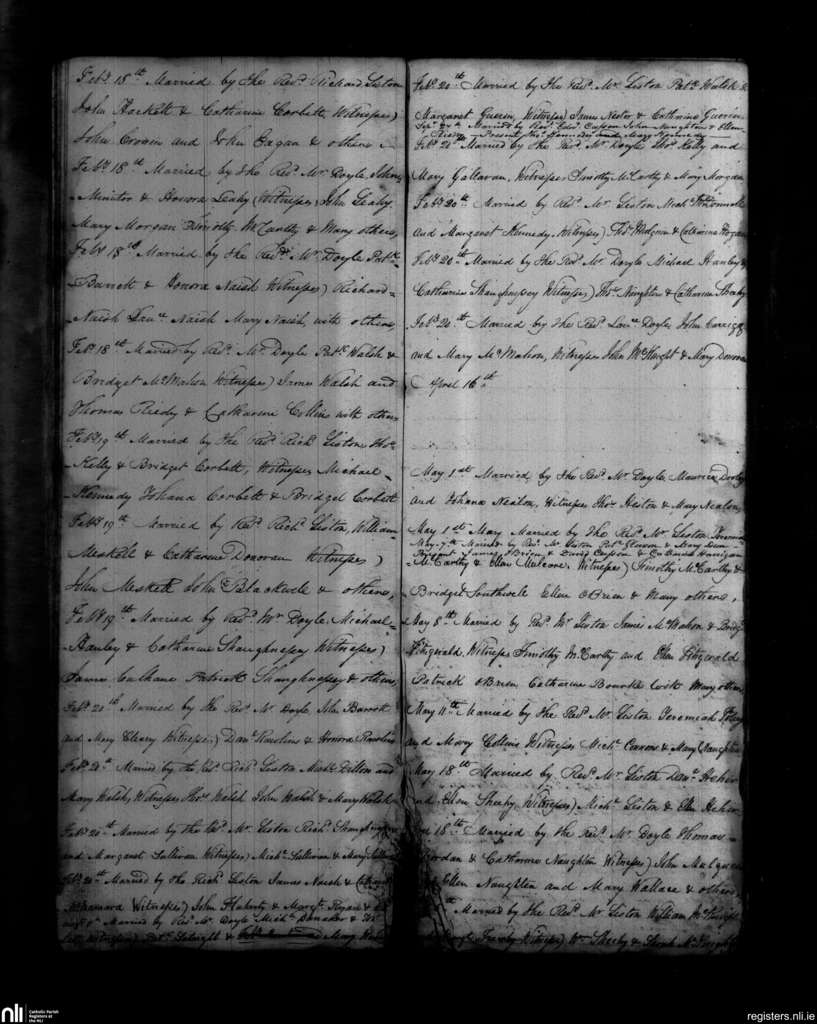 Feby. 18th Married by the Revd. Richard Liston
John Hackett & Catharine Corbett Witnesses)
John Cronin and John Eagan & others
Feby. 18th Married by the Revd. Mr. Doyle John
Minitor & Honora Leahy (Witnesses) John Leahy
Mary Morgan Timothy McCarthy & Many others,
Feby. 18th Married by the Revd. Mr. Doyle Patk.
Barrett & Honora Naish Witnesses) Richard
Naish Laue. Naish Mary Naish, with others,
Feby. 18th Married by Revd. Mr. Doyle Patk. Walsh &
Bridget McMahon Witnesses) James Walsh and
Thomas Reidy & Catharine Collins with others
Feby. 19th Married by the Revd. Richd. Liston Thos.
Kelly & Bridget Corbett, Witnesses Michael
Kennedy Johana Corbett & Bridget Corbett
Feby. 19th Married by Revd. Richd. Liston, William
Meskell & Catharine Donovan Witnesses)
John Meskell John Blackwell & others,
Feby. 19th Married by Revd. Mr. Doyle, Michael
Hanley & Catharine Shaughnessy Witnesses)
James Culhane Patrick Shaughnessy & others,
Feby. 20th Married by the Revd. Mr. Doyle John Barrett
and Mary Cleary Witnesses,) Danl. Rawlins & Honora Rawlins
Feby. 20th Married by the Revd. Richd. Liston Michl. Dillon and
Mary Walsh, Witnesses Thos. Walsh John Walsh & Mary Walsh
Feby. 20th Married by the Revd. Mr. Liston Richd. Shaughnessy
and Margaret Sullivan Witnesses) Michl. Sullivan & Mary Sullivan
Feby. 20th Married by the Richd. Liston James Naish &
McNamara Witnesses) John Flaherty & Margt. Ryan &
Married by Revd. Mr. Doyle Michl. &
Witnesses) Patk. & Mary
Feby. 20th Married by the Revd. Mr. Liston Patk. Walsh &
Margaret Guerin, Witnesses) James Nestor & Catharine Guerin
Married by Revd. Edwd. Cussen John Naughton & Ellen
Reidy Present
Feby. 20th Married by the Revd. Mr. Doyle Thos. Kelly and
Mary Gallavan, Witnesses Timothy McCarthy & Mary Morgan
Feby. 20th Married by Revd. Mr. Liston Michl.
and Margaret Kennedy, Witnesses) Thos. & Catharine Hogan
Feby. 20th Married by the Revd. Mr. Doyle Michael Hanley &
Catharine Shaughnessy Witnesses) Thos. Naughton & Catharine Sheehy
Feby. 20th Married by the Revd. Laue. Doyle, John Carrigg
and Mary McMahon, Witnesses John McKnight & Mary Donovan
April 16th
May 1st Married, by the Revd. Mr. Doyle Maurice Dooly
and Johana Nealon, Witnesses Thos. Heston & Mary Nealon,
May 1st Mary Married by the Revd. Mr. Liston
May 7th Married by Revd. Mr. Liston Patk. &
Present James OBrien & David Cussen & Catharine Hanigan
McCarthy & Ellen Mulcare, Witnesses) Timothy McCarthy &
Bridget Southwell Ellen OBrien & Many others,
May 8th Married by Revd. Mr. Liston James McMahon & Bridgt.
Fitzgerald, Witnesses Timothy McCarthy and Ellen Fitzgerald
Patrick OBrien Catharine Bourke with Many others
May 11th Married by the Revd. Mr. Liston Jeremiah Foley
and Mary Collins Witnesses Michl. & Mary Naughton
May 18th Married by Revd. Mr. Liston Danl. Heher
and Ellen Sheehy, Witnesses) Michl. Liston & Ellen Heher
18th Married by the Revd. Mr. Doyle Thomas
Riordan & Catharine Naughton Witnesses) John Mulqueen
Ellen Naughton and Mary Wallace & others
th Married by the Revd. Mr. Liston William McKnight
Witnesses) Wm. Sheehy & Sarah McKnight
nli
Catholic Parish
Registers at
the NLI
registers.nli.ie